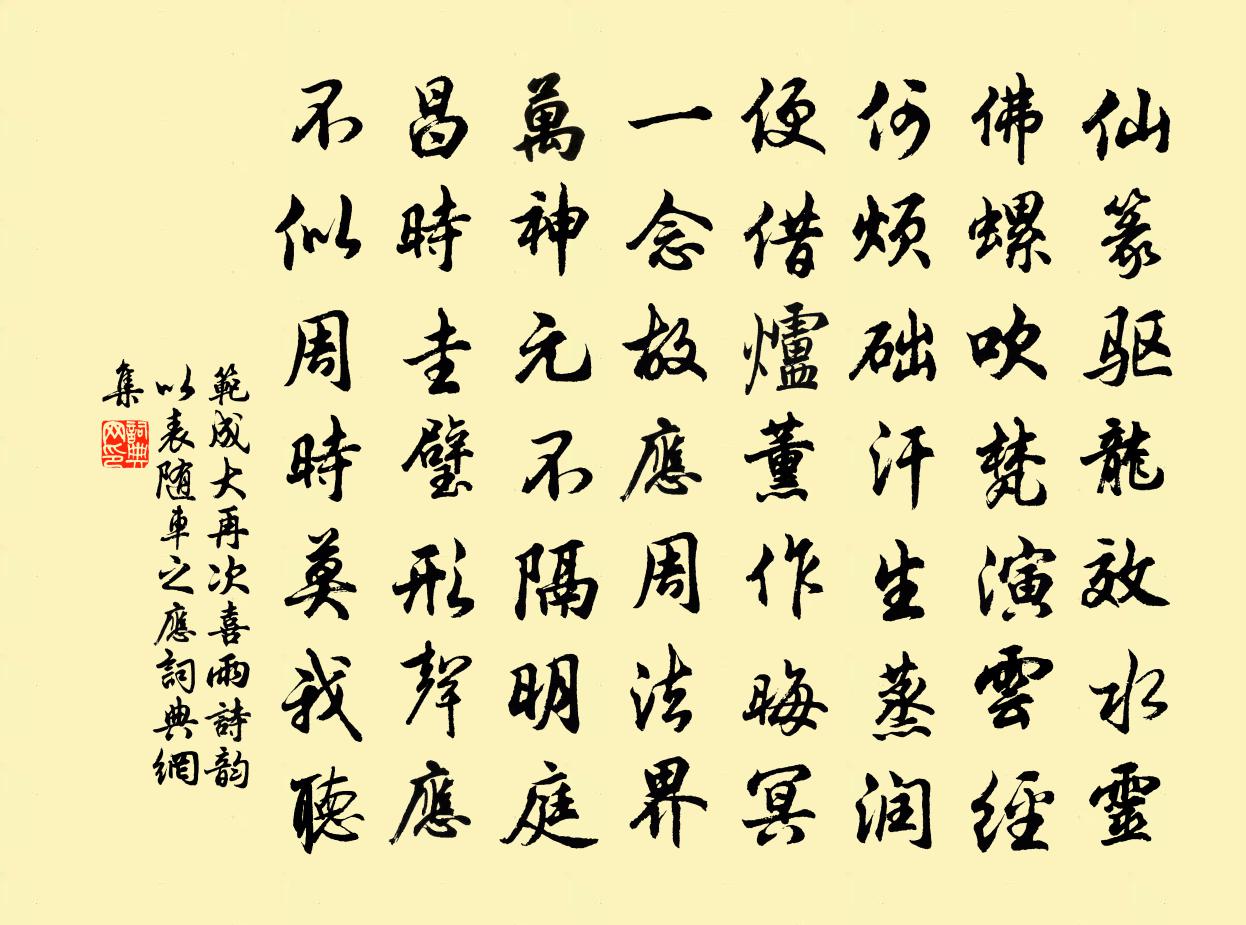 仙篆驱龍效水靈
佛螺吹梵演雲經
何烦础汗生蒸润
便借爐薰作晦冥
一念故應周法界
萬神元不隔明庭
昌時圭璧形聲應
不似周時莫我聽
範成大再次喜雨詩韵
以表随車之應詞典網
集
詞典
网印